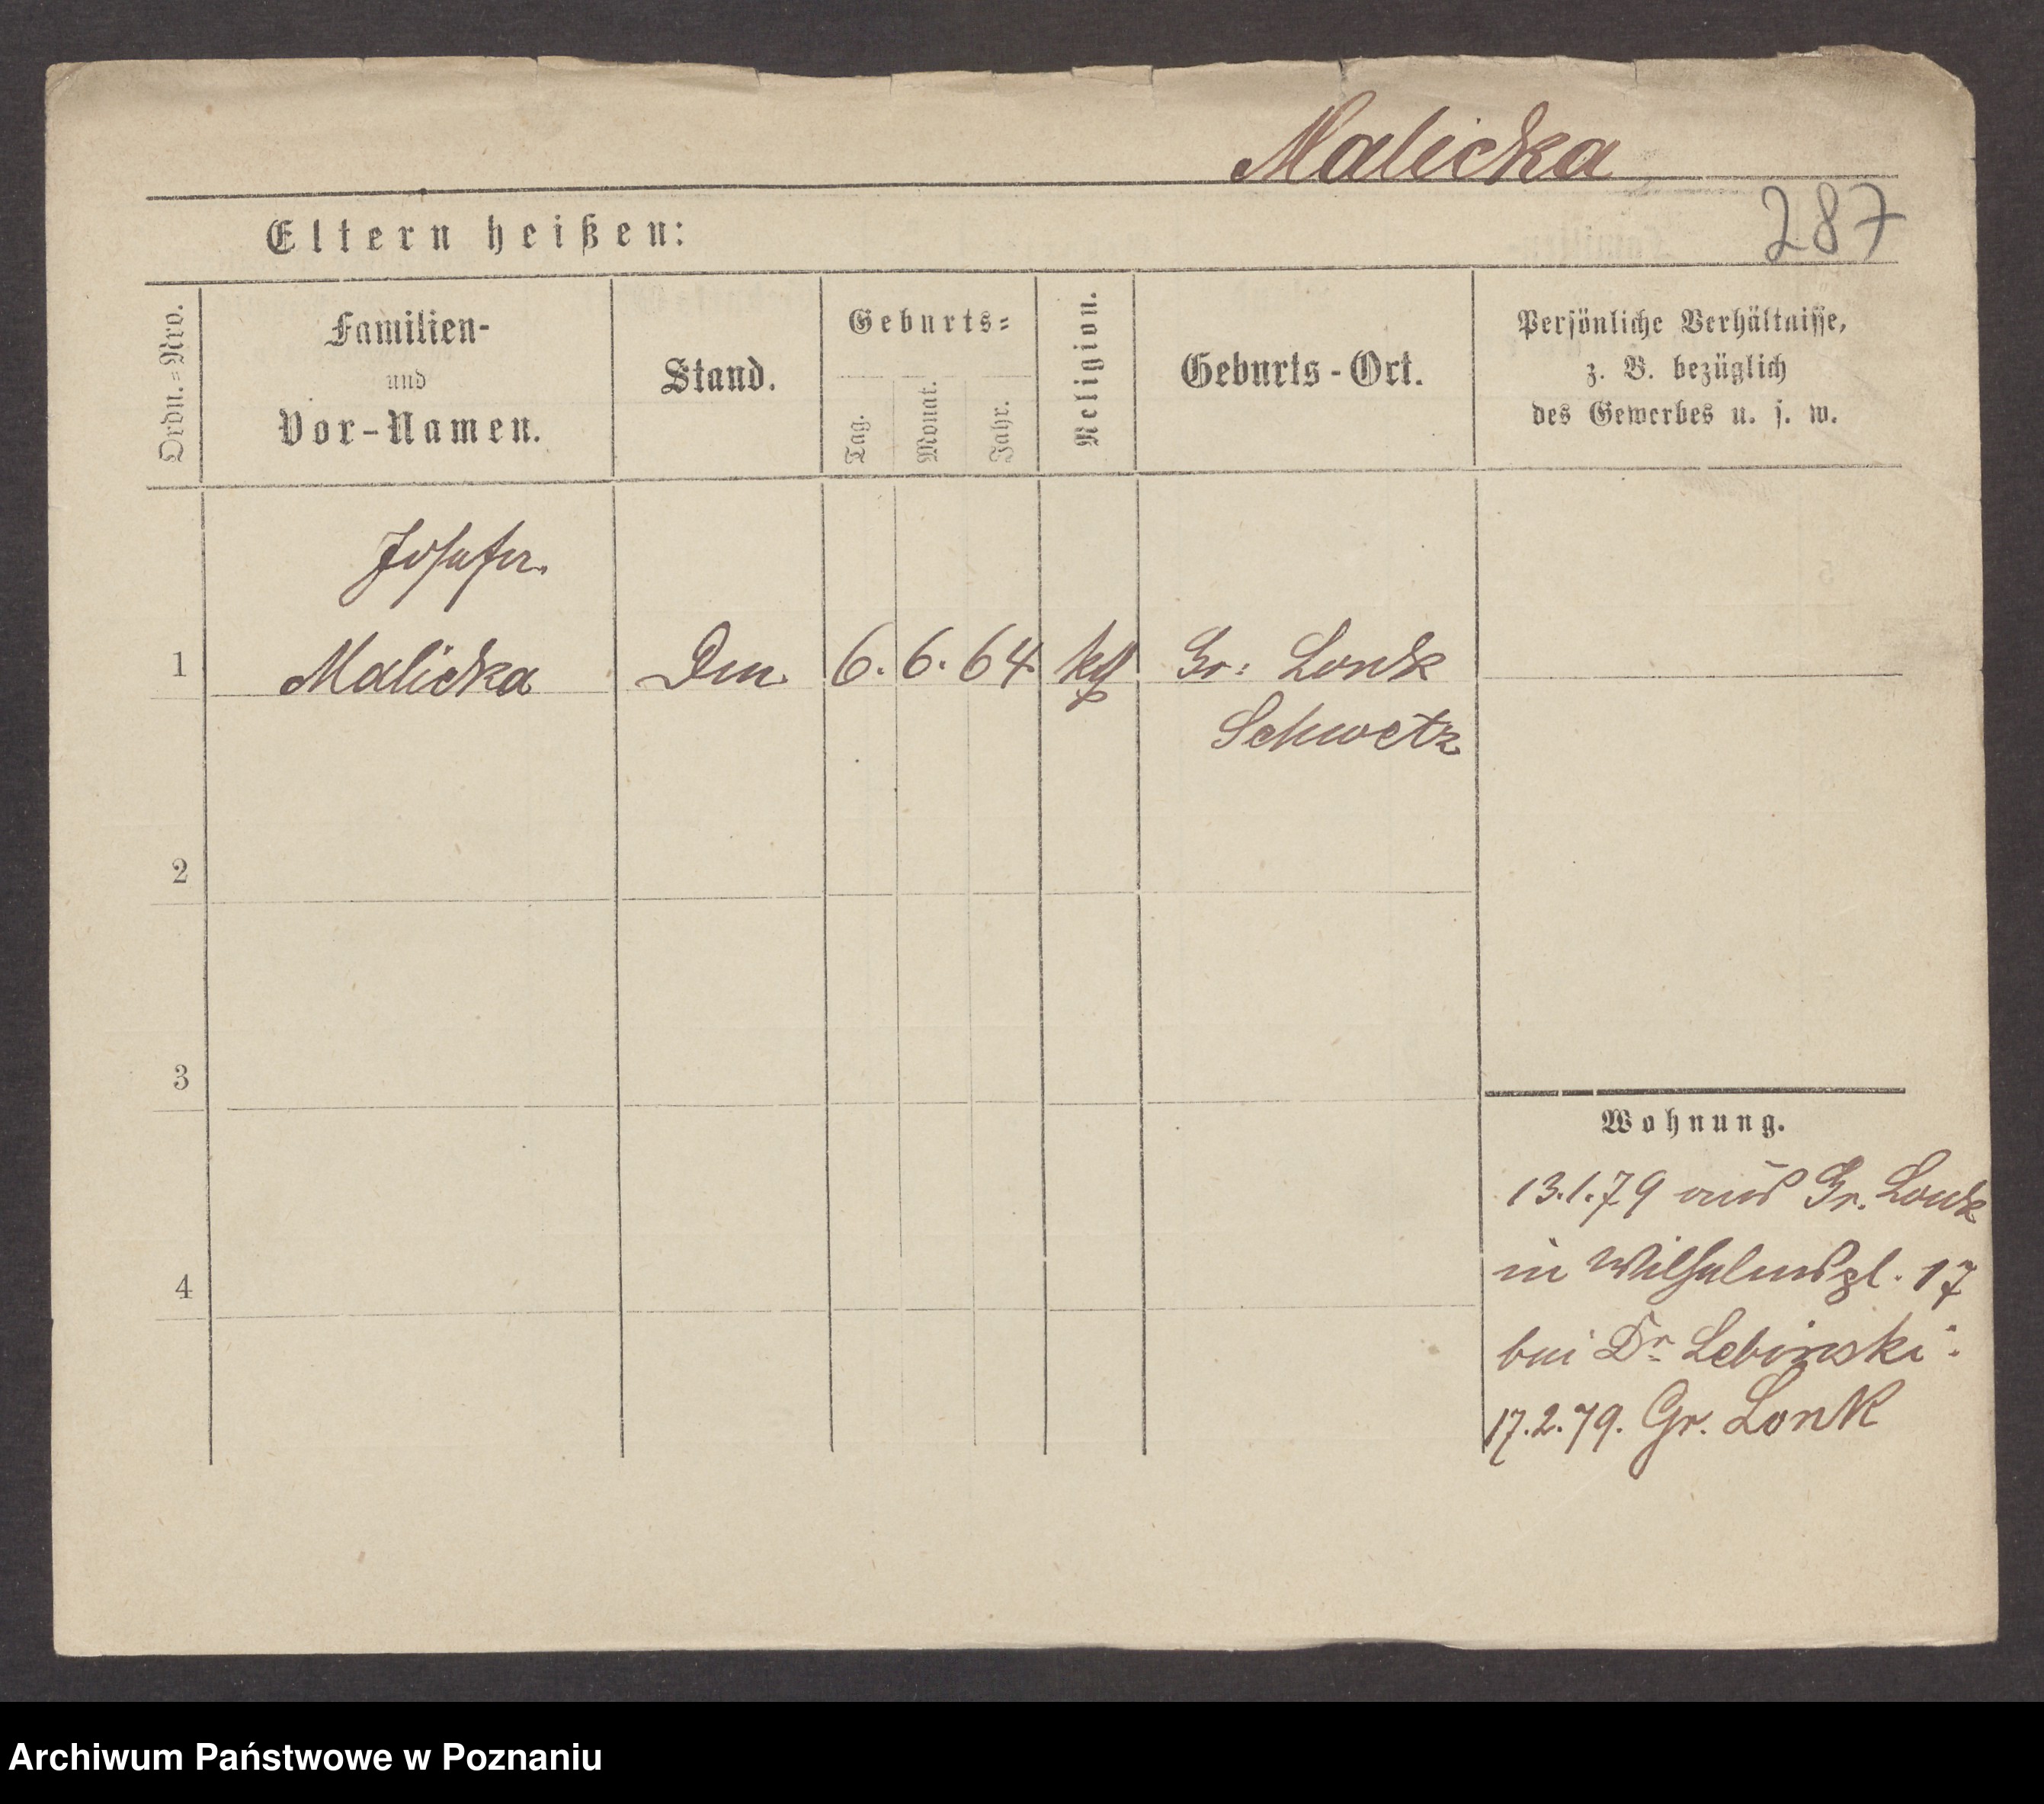 Malicka
287
Eltern heißen:
Ordn.=Nro.
Familien-
und
Vor-Namen.
Stand.
Geburts=
Tag.
Monat.
Jahr.
Religion.
Geburts-Ort.
Persönliche Verhältnisse,
z. B. bezüglich
des Gewerbes u. s. w.
Josefa
1 Malicka 6. 6. 64 Gr: Lonk
Schwetz
2
3
4
Wohnung.
13.1.79 aus Gr. Lonk
in Wilhelmspl. 17
bei Dr Lebinski.
17.2.79. Gr. Lonk
Archiwum Państwowe w Poznaniu